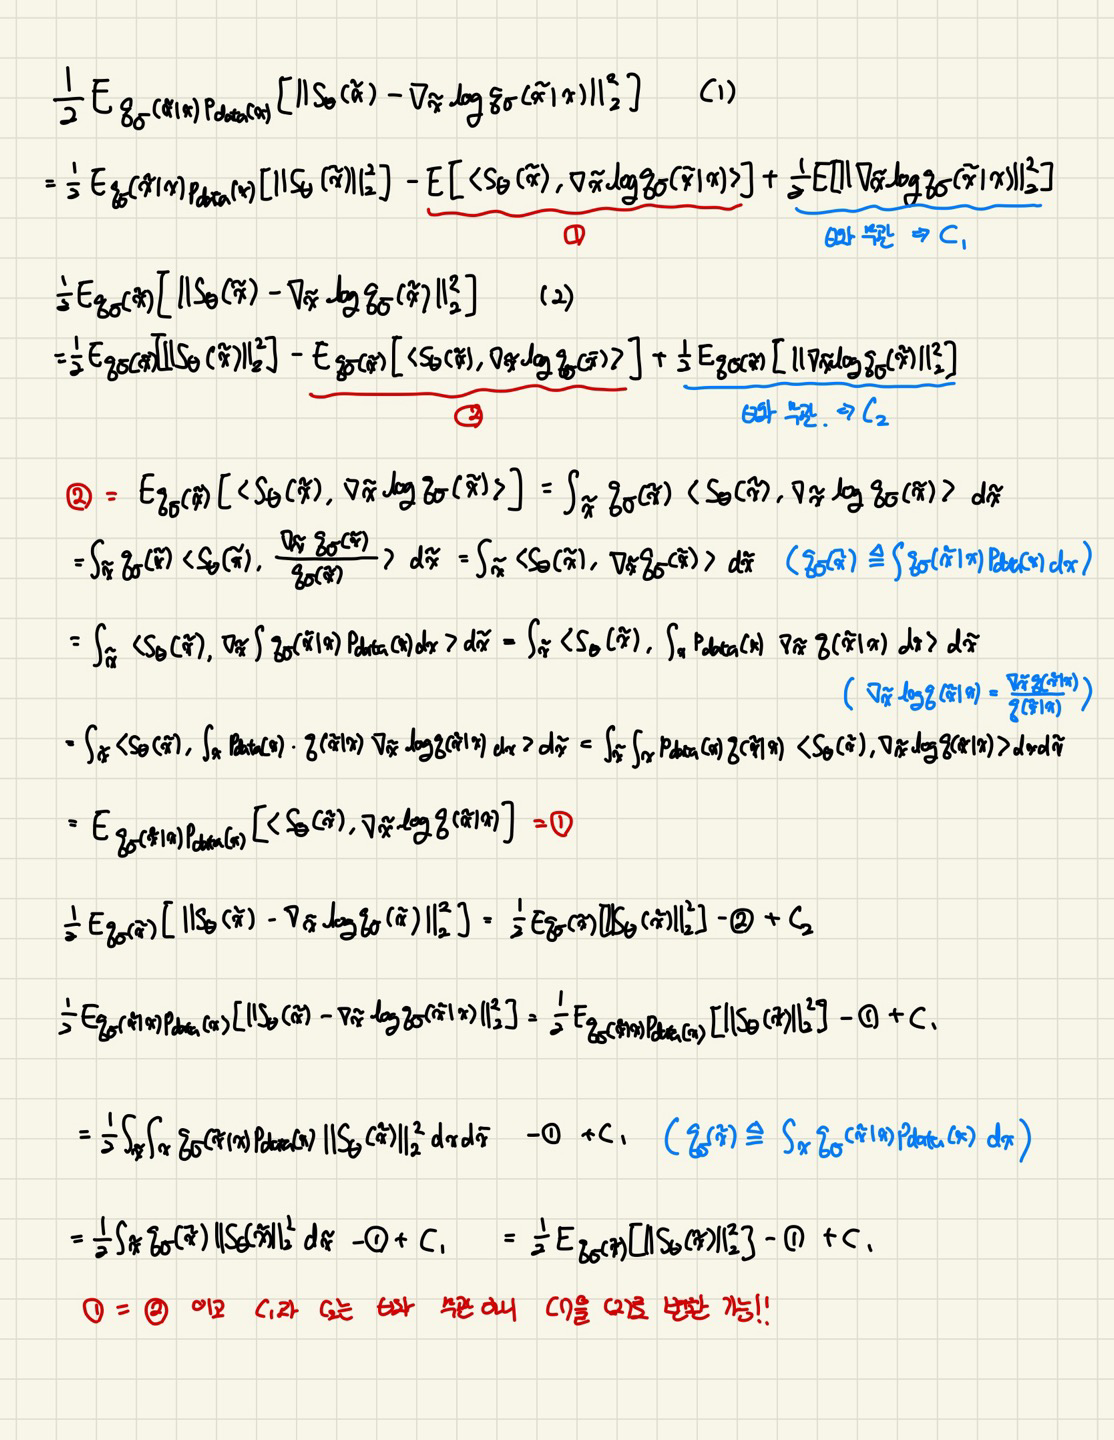 1/2 E_{q_σ(x̃|x)P_data(x)} [||S_θ(x̃) − ∇_x̃ log q_σ(x̃|x)||₂²] (1)
= 1/2 E_{q_σ(x̃|x)P_data(x)} [||S_θ(x̃)||₂²] − E[<S_θ(x̃), ∇_x̃ log q_σ(x̃|x)>] + 1/2 E[||∇_x̃ log q_σ(x̃|x)||₂²]
① θ와 무관 ⇒ C₁
1/2 E_{q_σ(x̃)} [||S_θ(x̃) − ∇_x̃ log q_σ(x̃)||₂²] (2)
= 1/2 E_{q_σ(x̃)} [||S_θ(x̃)||₂²] − E_{q_σ(x̃)} [<S_θ(x̃), ∇_x̃ log q_σ(x̃)>] + 1/2 E_{q_σ(x̃)} [||∇_x̃ log q_σ(x̃)||₂²]
② θ와 무관. ⇒ C₂
② = E_{q_σ(x̃)} [<S_θ(x̃), ∇_x̃ log q_σ(x̃)>] = ∫_x̃ q_σ(x̃) <S_θ(x̃), ∇_x̃ log q_σ(x̃)> dx̃
= ∫_x̃ q_σ(x̃) <S_θ(x̃), ∇_x̃ q_σ(x̃) / q_σ(x̃)> dx̃ = ∫_x̃ <S_θ(x̃), ∇_x̃ q_σ(x̃)> dx̃ (q_σ(x̃) ≜ ∫ q_σ(x̃|x) P_data(x) dx)
= ∫_x̃ <S_θ(x̃), ∇_x̃ ∫ q_σ(x̃|x) P_data(x) dx> dx̃ = ∫_x̃ <S_θ(x̃), ∫_x P_data(x) ∇_x̃ q(x̃|x) dx> dx̃
(∇_x̃ log q(x̃|x) = ∇_x̃ q(x̃|x) / q(x̃|x))
= ∫_x̃ <S_θ(x̃), ∫_x P_data(x) · q(x̃|x) ∇_x̃ log q(x̃|x) dx> dx̃ = ∫_x̃ ∫_x P_data(x) q(x̃|x) <S_θ(x̃), ∇_x̃ log q(x̃|x)> dx dx̃
= E_{q_σ(x̃|x)P_data(x)} [<S_θ(x̃), ∇_x̃ log q(x̃|x)] = ①
1/2 E_{q_σ(x̃)} [||S_θ(x̃) − ∇_x̃ log q_σ(x̃)||₂²] = 1/2 E_{q_σ(x̃)} [||S_θ(x̃)||₂²] − ② + C₂
1/2 E_{q_σ(x̃|x)P_data(x)} [||S_θ(x̃) − ∇_x̃ log q_σ(x̃|x)||₂²] = 1/2 E_{q_σ(x̃|x)P_data(x)} [||S_θ(x̃)||₂²] − ① + C₁
= 1/2 ∫_x̃ ∫_x q_σ(x̃|x) P_data(x) ||S_θ(x̃)||₂² dx dx̃ − ① + C₁ (q_σ(x̃) ≜ ∫_x q_σ(x̃|x) P_data(x) dx)
= 1/2 ∫_x̃ q_σ(x̃) ||S_θ(x̃)||₂² dx̃ − ① + C₁ = 1/2 E_{q_σ(x̃)} [||S_θ(x̃)||₂²] − ① + C₁
① = ② 이고 C₁과 C₂는 θ와 무관 하니 (1)을 (2)로 변환 가능!!